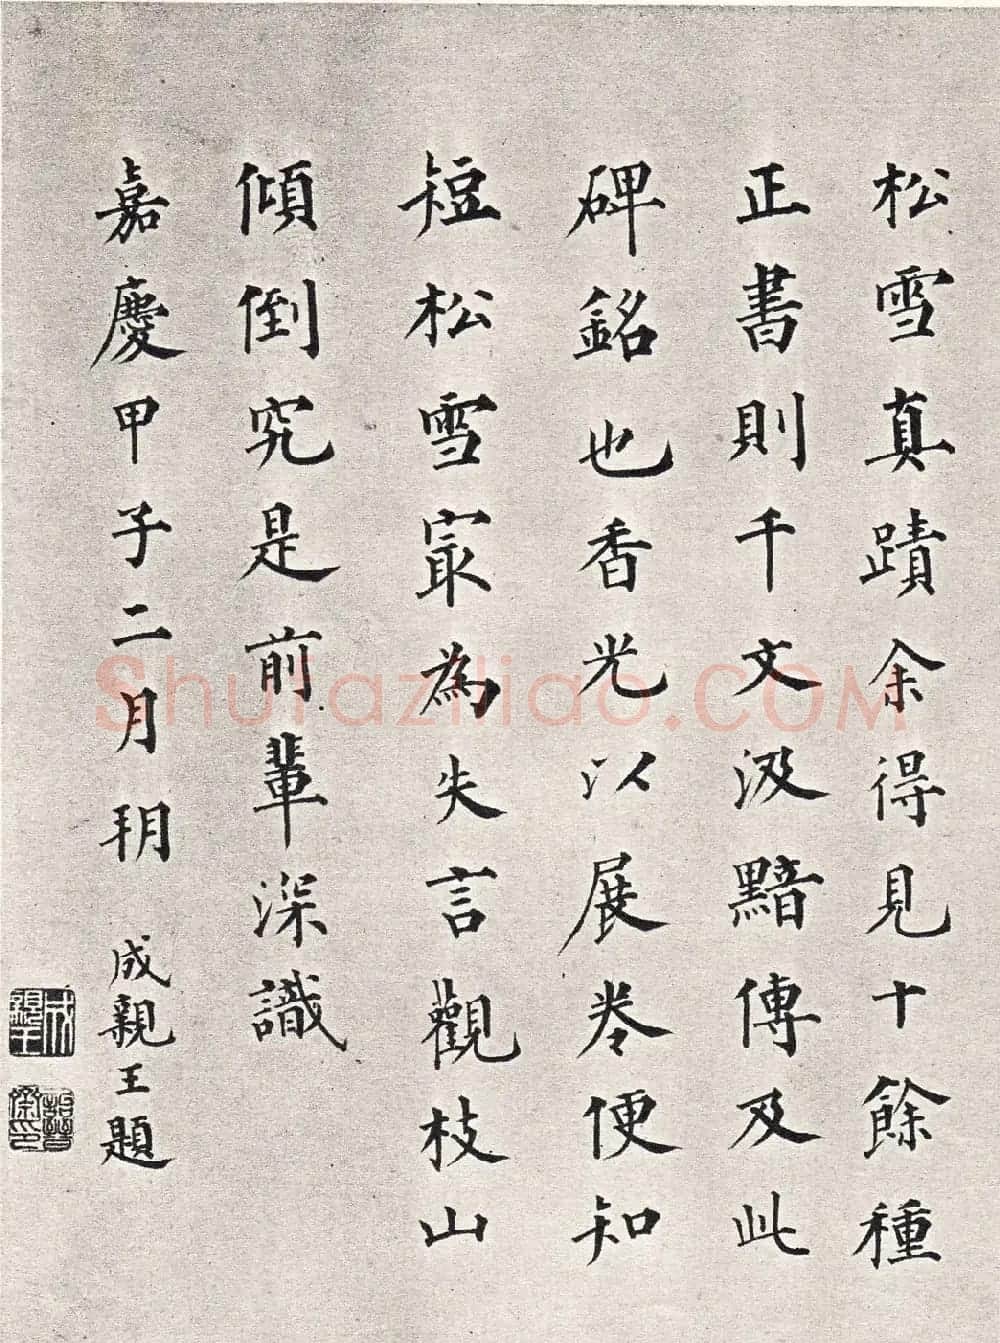 松雪真蹟余得見十餘種
正書則千文汲黯傳及此
碑銘也香光以展卷便知
短松雪冣為失言觀枝山
傾倒究是前輩深識
嘉慶甲子二月玥 成親王題
成親王
詒晉齋印
Shufaziliao.COM